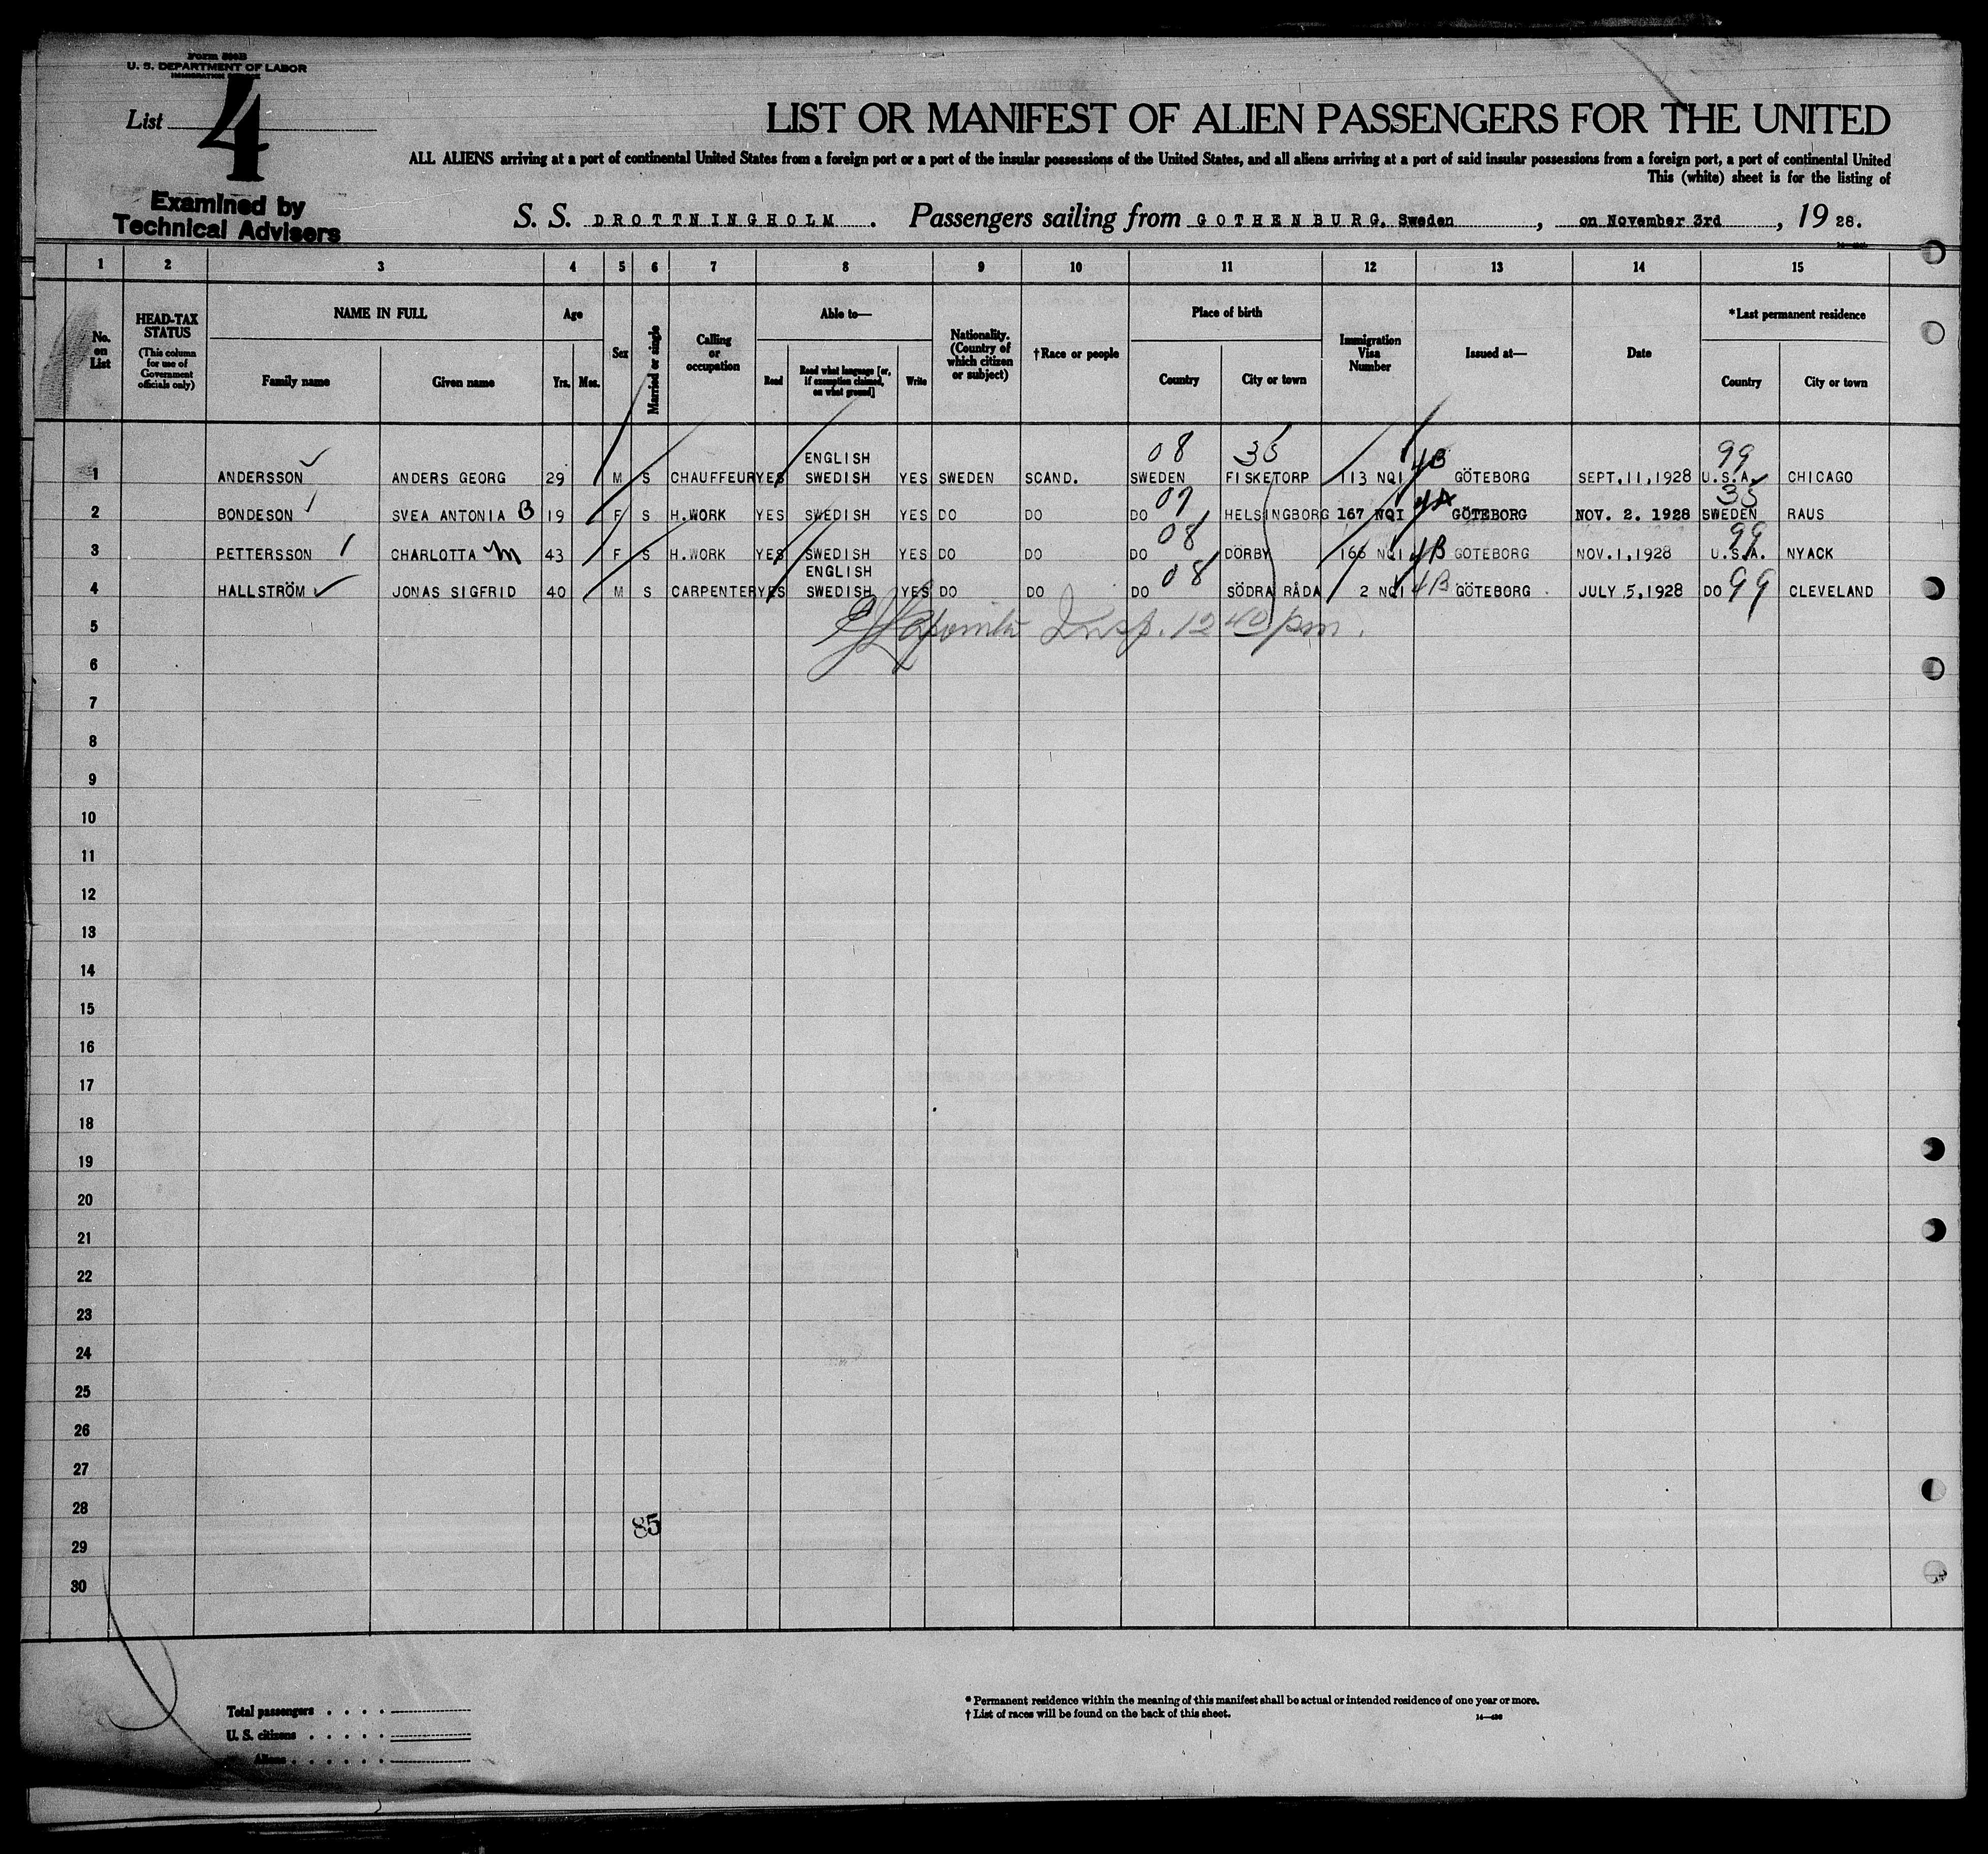 Form 500B
U. S. DEPARTMENT OF LABOR
IMMIGRATION SERVICE
List 4
LIST OR MANIFEST OF ALIEN PASSENGERS FOR THE UNITED
ALL ALIENS arriving at a port of continental United States from a foreign port or a port of the insular possessions of the United States, and all aliens arriving at a port of said insular possessions from a foreign port, a port of continental United
This (white) sheet is for the listing of
Examined by
Technical Advisers
S. S. DROTTNINGHOLM. Passengers sailing from GOTHENBURG, Sweden, on November 3rd, 1928.
1 2 3 4 5 6 7 8 9 10 11 12 13 14 15
No. on List
HEAD-TAX STATUS
(This column for use of Government officials only)
NAME IN FULL
Family name Given name
Age
Yrs. Mos.
Sex
Married or single
Calling or occupation
Able to—
Read
Read what language [or, if exemption claimed, on what ground]
Write
Nationality. (Country of which citizen or subject)
†Race or people
Place of birth
Country City or town
Immigration Visa Number
Issued at—
Date
*Last permanent residence
Country City or town
08 35 99
ENGLISH 4B
1 ANDERSSON ANDERS GEORG 29 M S CHAUFFEUR YES SWEDISH YES SWEDEN SCAND. SWEDEN FISKETORP 113 NQI GÖTEBORG SEPT.11,1928 U.S.A. CHICAGO
07 4A 35
2 BONDESON SVEA ANTONIA B 19 F S H.WORK YES SWEDISH YES DO DO DO HELSINGBORG 167 NQI GÖTEBORG NOV. 2. 1928 SWEDEN RAUS
08 99
3 PETTERSSON CHARLOTTA M 43 F S H.WORK YES SWEDISH YES DO DO DO DÖRBY 166 NQI 4B GÖTEBORG NOV.1,1928 U.S.A. NYACK
ENGLISH 08
4 HALLSTRÖM JONAS SIGFRID 40 M S CARPENTER YES SWEDISH YES DO DO DO SÖDRA RÅDA 2 NQI 4B GÖTEBORG JULY 5,1928 DO 99 CLEVELAND
5 Insp. 12 40 pm.
6
7
8
9
10
11
12
13
14
15
16
17
18
19
20
21
22
23
24
25
26
27
28
85
29
30
Total passengers . . . .
U. S. citizens . . . . .
Aliens . . . . . .
* Permanent residence within the meaning of this manifest shall be actual or intended residence of one year or more.
† List of races will be found on the back of this sheet.